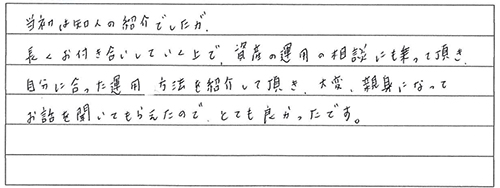 当初は知人の紹介でしたが、
長くお付き合いしていく上で、資産の運用の相談にも乗って頂き、
自分に合った運用 方法を紹介して頂き、大変、親身になって
お話を聞いてもらえたので、とても良かったです。